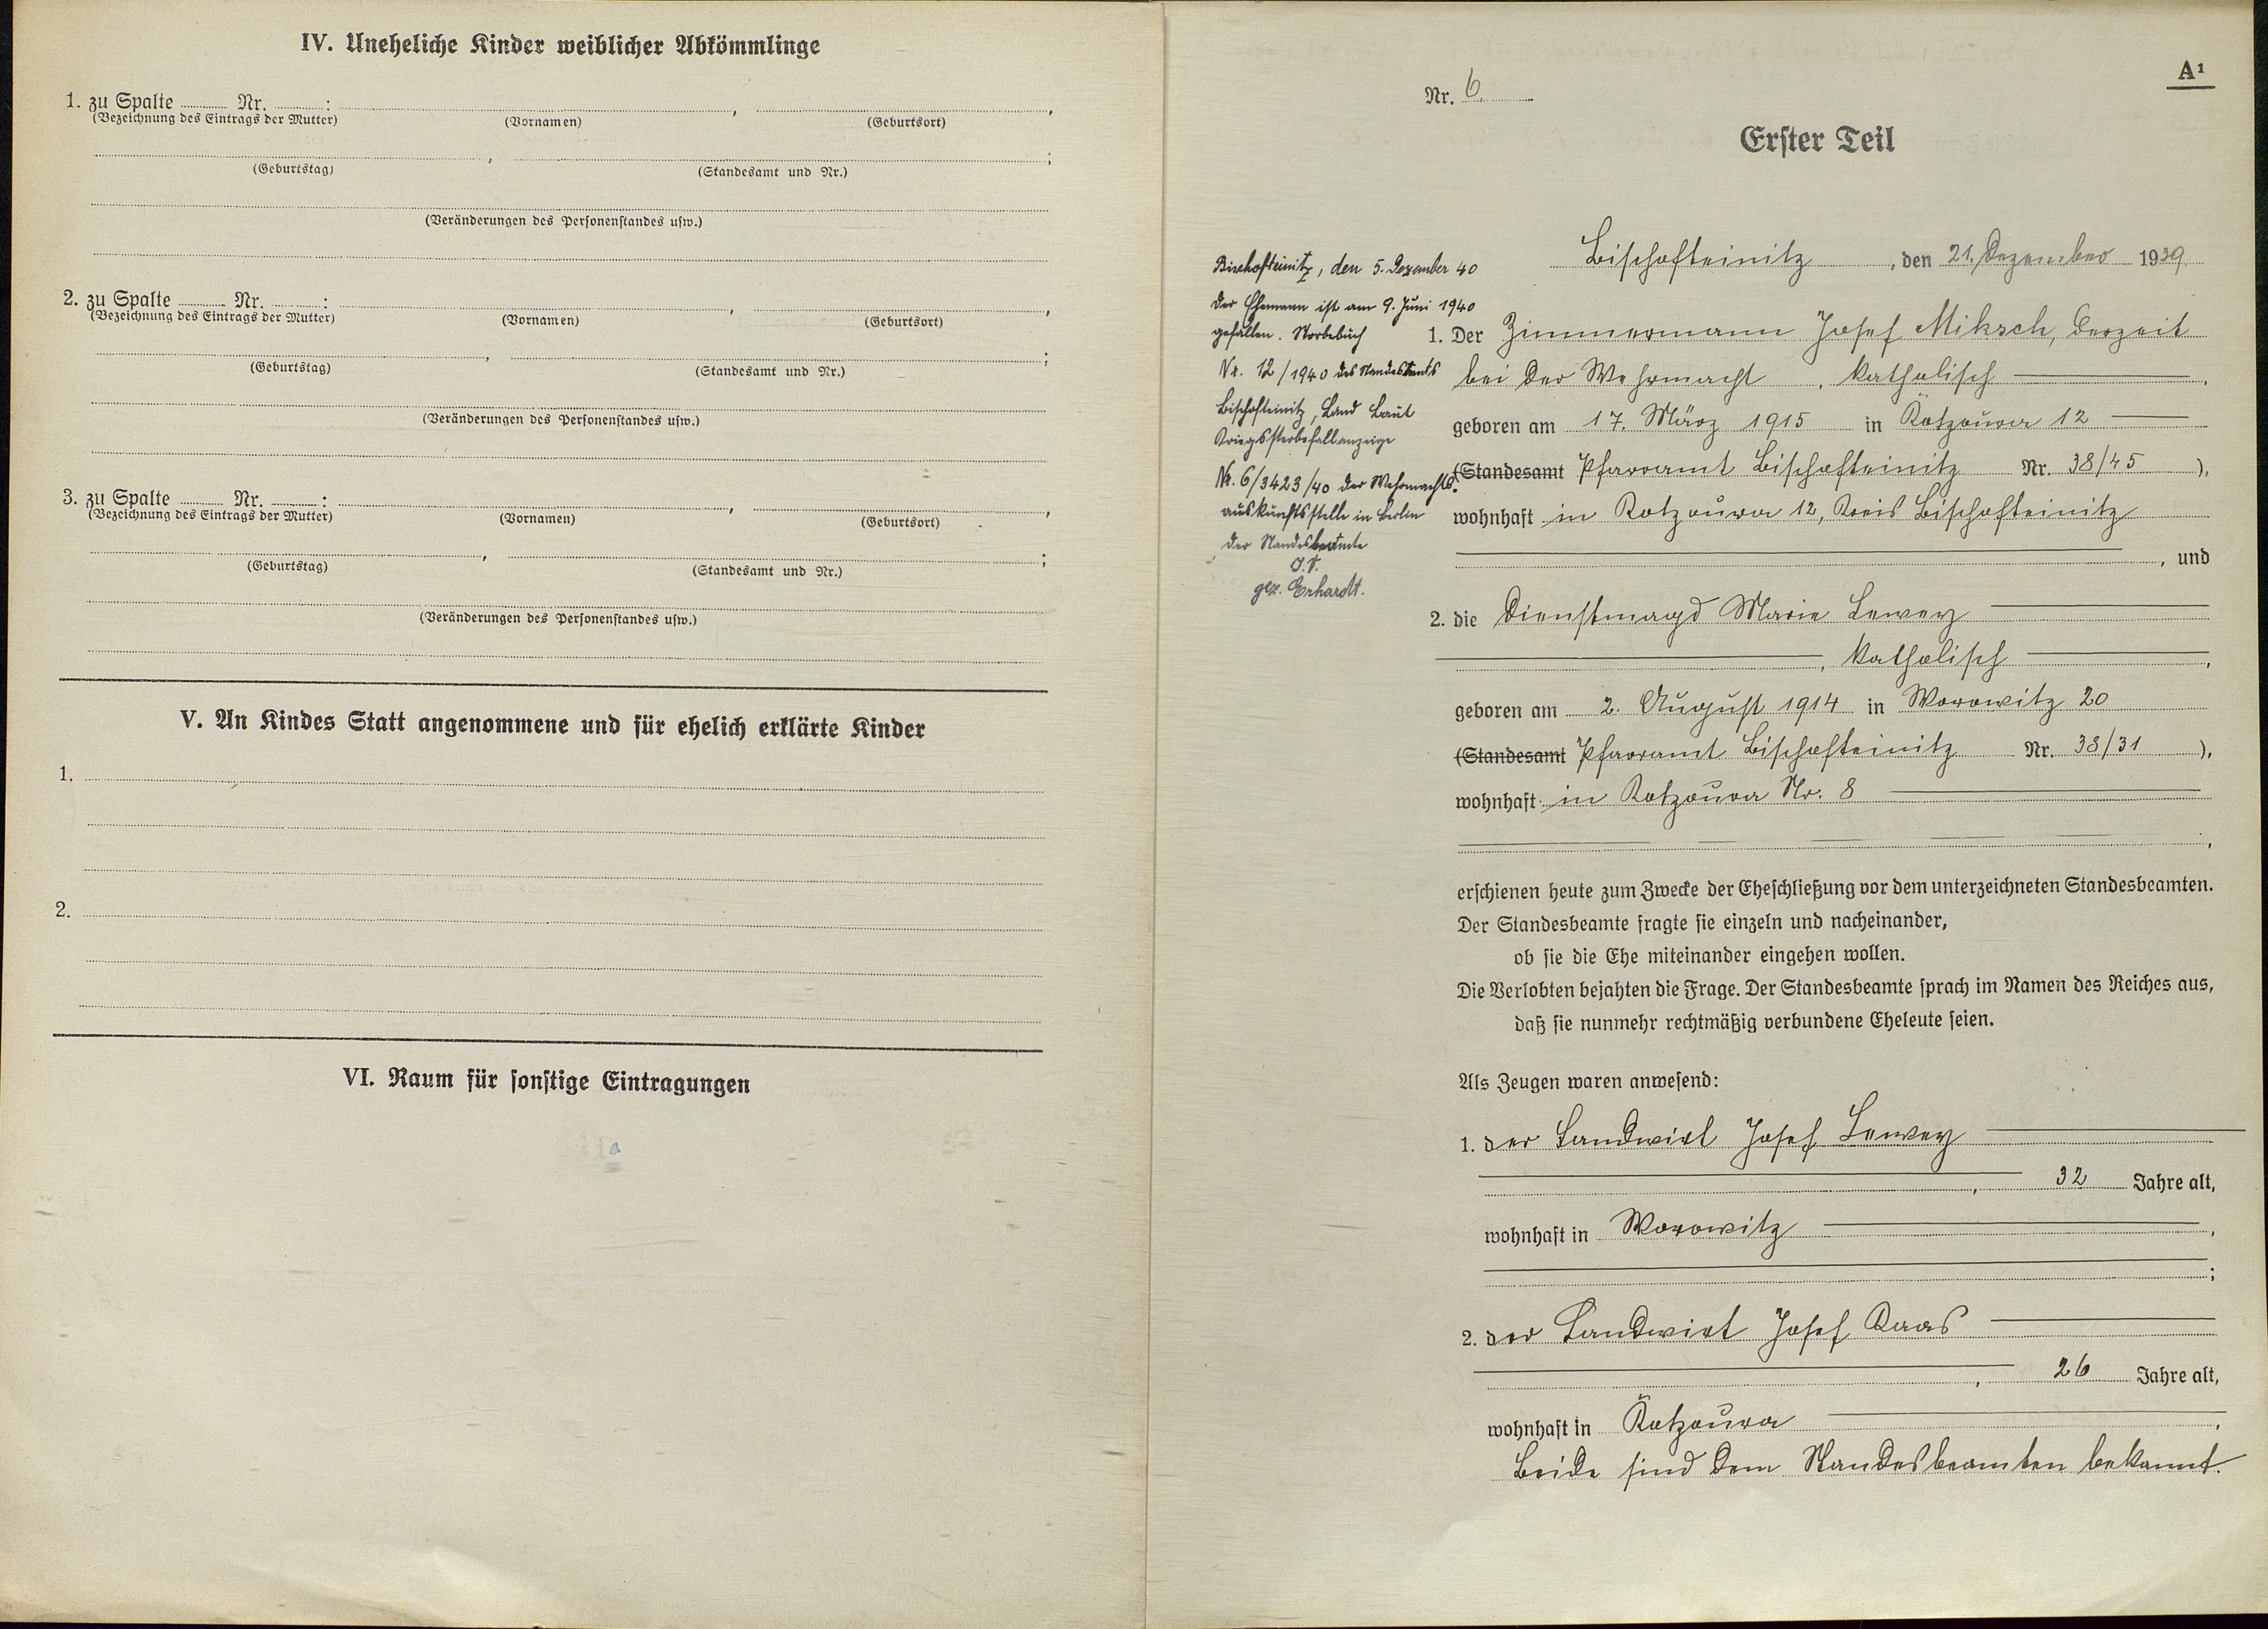 IV. Uneheliche Kinder weiblicher Abkömmlinge
1. zu Spalte Nr. : , ,
(Bezeichnung des Eintrags der Mutter) (Vornamen) (Geburtsort)
, ;
(Geburtstag) (Standesamt und Nr.)
(Veränderungen des Personenstandes usw.)
2. zu Spalte Nr. : , ,
(Bezeichnung des Eintrags der Mutter) (Vornamen) (Geburtsort)
, ;
(Geburtstag) (Standesamt und Nr.)
(Veränderungen des Personenstandes usw.)
3. zu Spalte Nr. : , ,
(Bezeichnung des Eintrags der Mutter) (Vornamen) (Geburtsort)
, ;
(Geburtstag) (Standesamt und Nr.)
(Veränderungen des Personenstandes usw.)
V. An Kindes Statt angenommene und für ehelich erklärte Kinder
1.
2.
VI. Raum für sonstige Eintragungen
A1
Nr. 6.
Erster Teil
Bischofteinitz, den 5. Dezember 40
Der Ehemann ist am 9. Juni 1940
gefallen. Sterbebuch
Nr. 12/1940 des Standesamts
Bischofteinitz, Land Laut
Kriegssterbefallanzeige
Nr. 6/3423/40 der Wehrmachts-
auskunftsstelle in Berlin
Der Standesbeamte
J.V.
gez. Erhardt.
Bischofteinitz, den 21. Dezember 1939
1. Der Zimmermann Josef Miksch, derzeit
bei der Wehrmacht, katholisch,
geboren am 17. März 1915 in Kotzoura 12
(Standesamt Pfarramt Bischofteinitz Nr. 38/45),
wohnhaft in Kotzoura 12, Kreis Bischofteinitz
, und
2. die Dienstmagd Marie Lewey
, katholisch,
geboren am 2. August 1914 in Worowitz 20
(Standesamt Pfarramt Bischofteinitz Nr. 38/31),
wohnhaft in Kotzoura Nr. 8
,
erschienen heute zum Zwecke der Eheschließung vor dem unterzeichneten Standesbeamten.
Der Standesbeamte fragte sie einzeln und nacheinander,
ob sie die Ehe miteinander eingehen wollen.
Die Verlobten bejahten die Frage. Der Standesbeamte sprach im Namen des Reiches aus,
daß sie nunmehr rechtmäßig verbundene Eheleute seien.
Als Zeugen waren anwesend:
1. der Landwirt Josef Lewey
, 32 Jahre alt,
wohnhaft in Worowitz,
;
2. der Landwirt Josef Kaas
, 26 Jahre alt,
wohnhaft in Kotzoura,
Beide sind dem Standesbeamten bekannt.